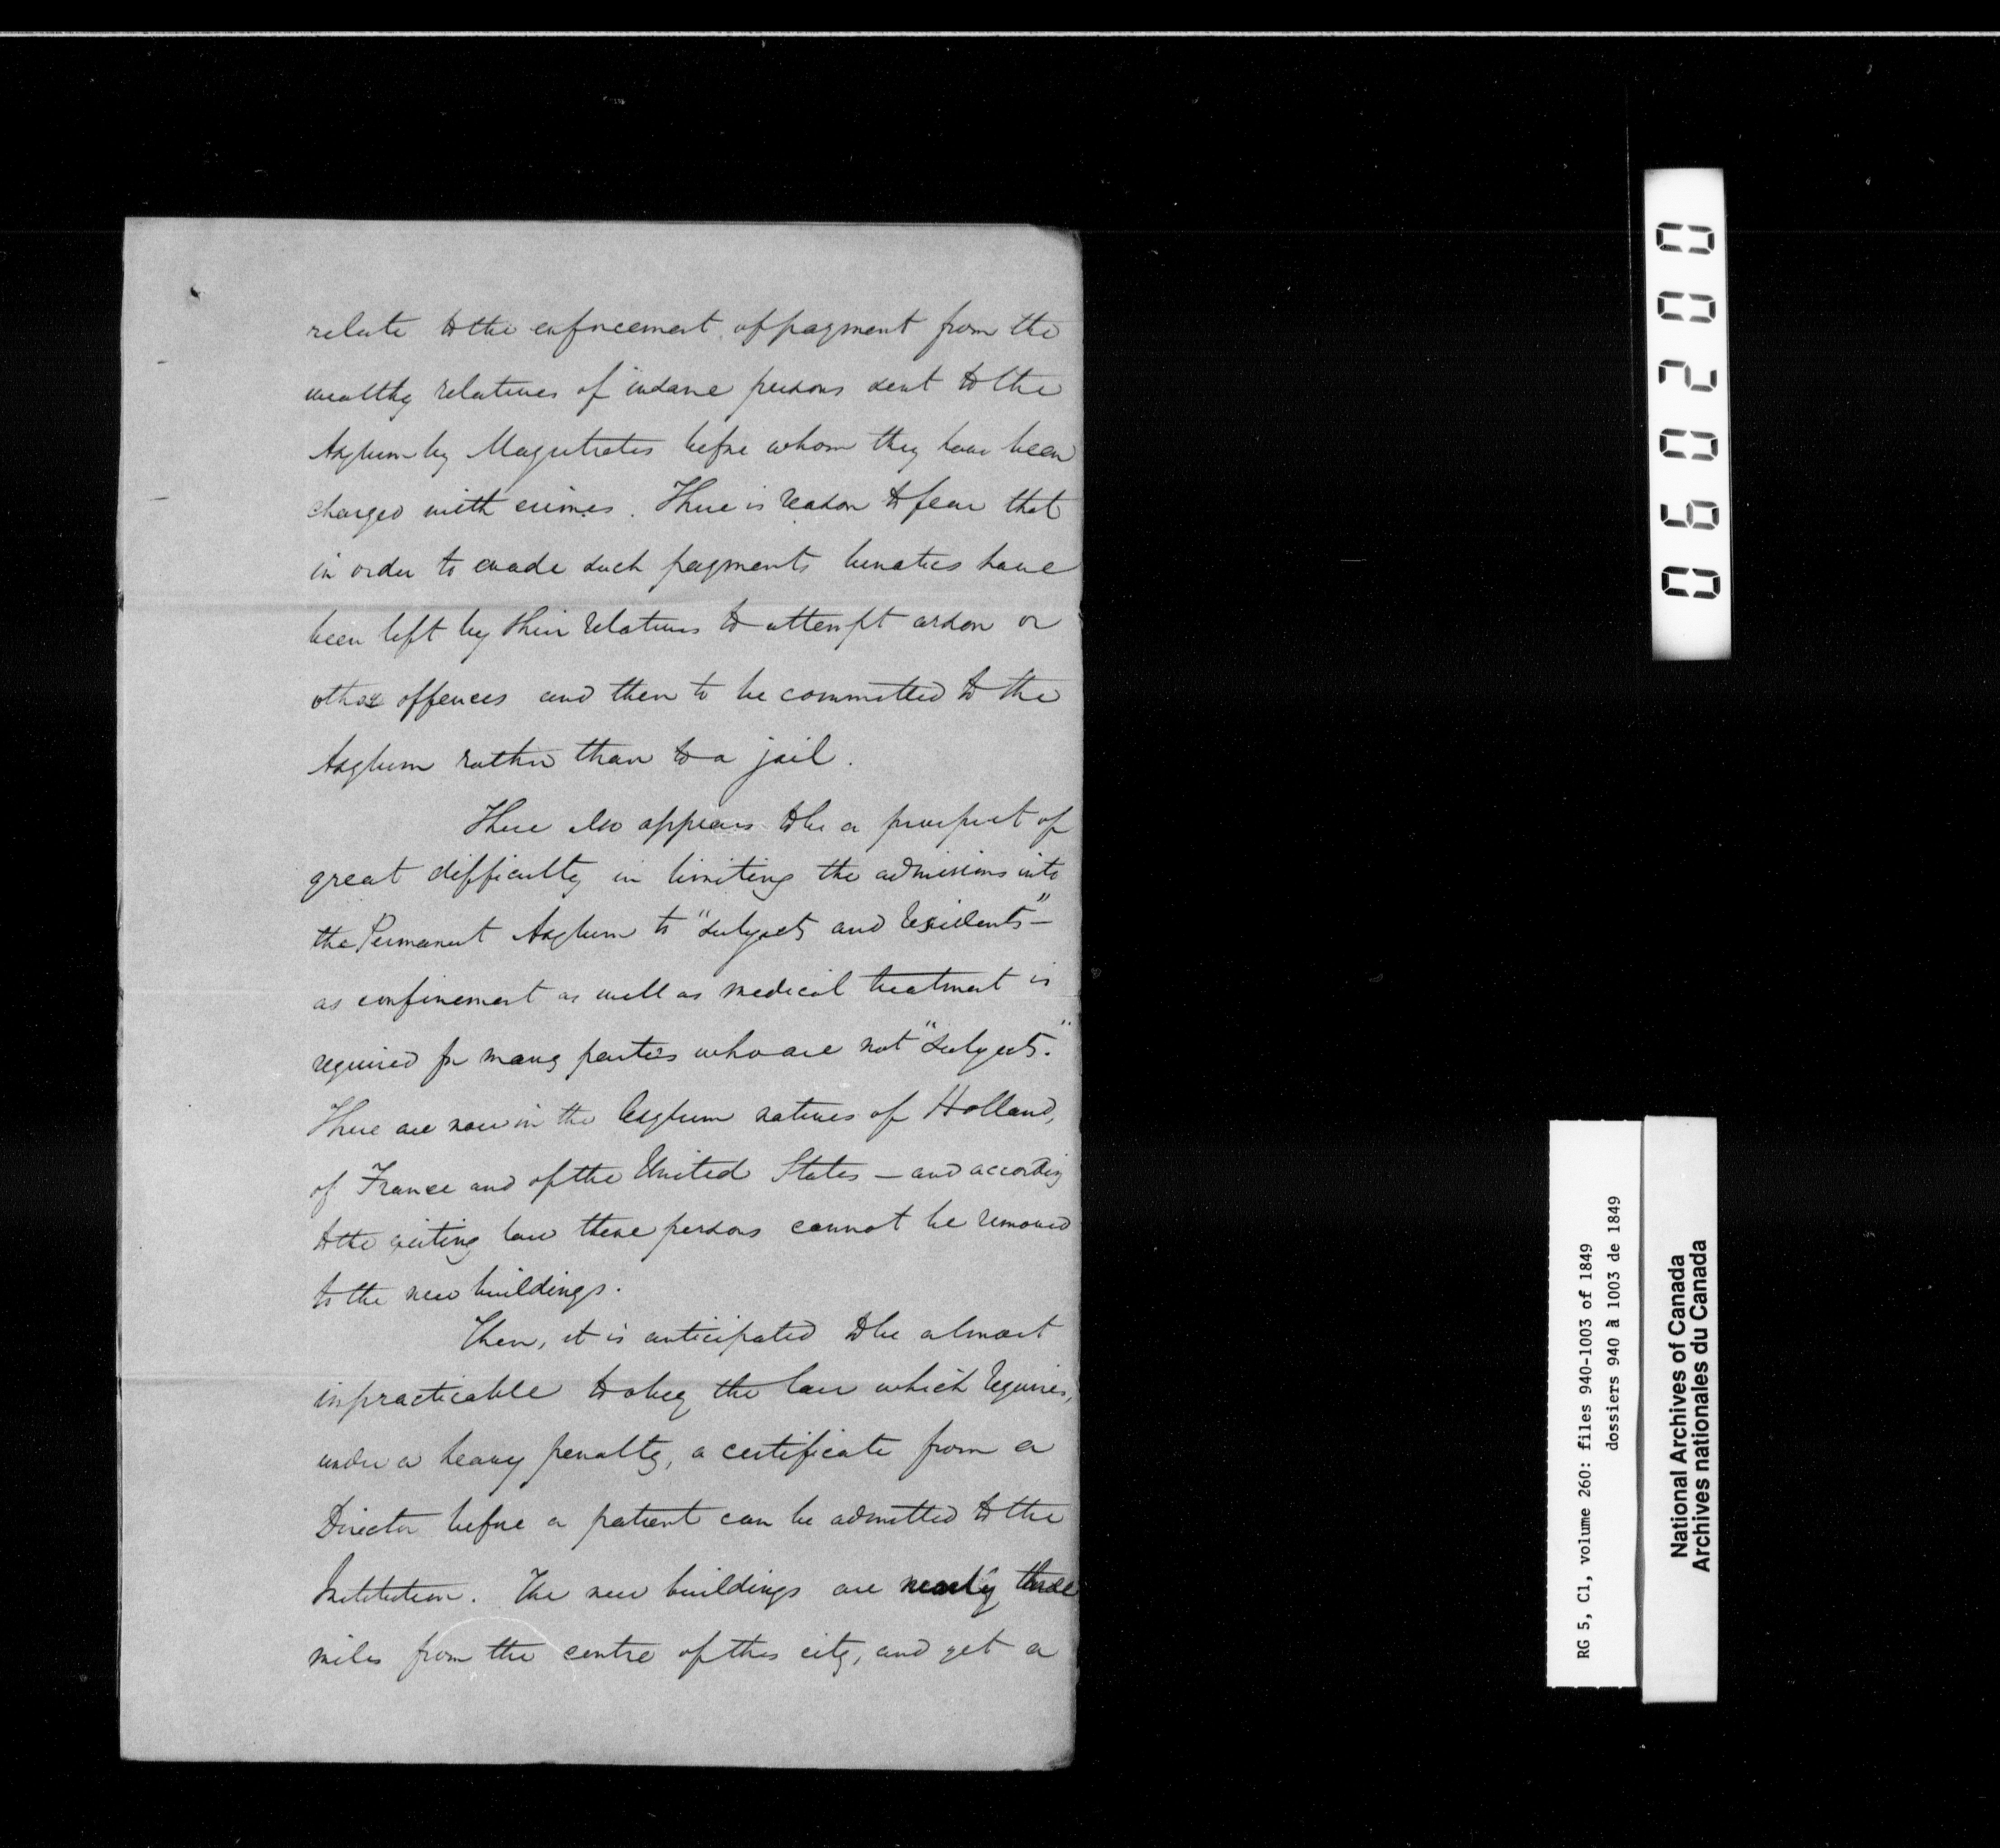 relate to the enforcement of payment from the
wealthy relatives of insane persons sent to the
Asylum by Magistrates before whom they have been
charged with crimes. There is reason to fear that
in order to evade such payments lunatics have
been left by their relatives to attempt arson or
other offences and then to be committed to the
Asylum rather than to a jail.
There also appears to be a prospect of
great difficulty in limiting the admissions into
the Permanent Asylum to "subjects and residents" –
as confinement as well as medical treatment is
required for many parties who are not "subjects."
There are now in the Asylum natives of Holland,
of France and of the United States – and according
to the existing law these persons cannot be removed
to the new buildings.
Then, it is anticipated to be almost
impracticable to obey the law which requires,
under a heavy penalty, a certificate from a
Director before a patient can be admitted to the
Institution. The new buildings are nearly three
miles from the centre of this city, and yet a
060200
RG 5, C1, volume 260: files 940-1003 of 1849
dossiers 940 à 1003 de 1849
National Archives of Canada
Archives nationales du Canada